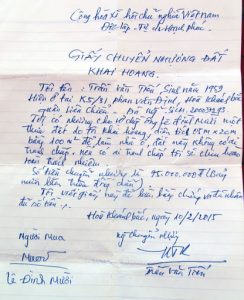 Cộng hòa xã hội chủ nghĩa Việt Nam
Độc lập - Tự do - Hạnh phúc
GIẤY CHUYỂN NHƯỢNG ĐẤT
KHAI HOANG.
Tôi tên: Trần Văn Tiến, Sinh năm 1959
Hiện ở tại K5/91, Phan Văn Định, Hoà Khánh Bắc
quận Liên Chiểu.
Tôi có nhượng cho vợ chồng ông Lê Đình Mười một
thửa đất do tôi khai hoang, diện tích 05m x 20m
bằng 100m² để làm nhà ở, đất này không có ai
tranh chấp, nếu có ai tranh chấp tôi sẽ chịu hoàn
toàn trách nhiệm.
Số tiền chuyển nhượng là 95.000.000đ (Chín
mươi lăm triệu đồng chẵn)
Tôi viết giấy này để làm bằng chứng và đã nhận
đủ số tiền
Hoà Khánh Bắc, ngày 10/2/2015
Người Mua
Mười
Lê Đình Mười
Trần Văn Tiến